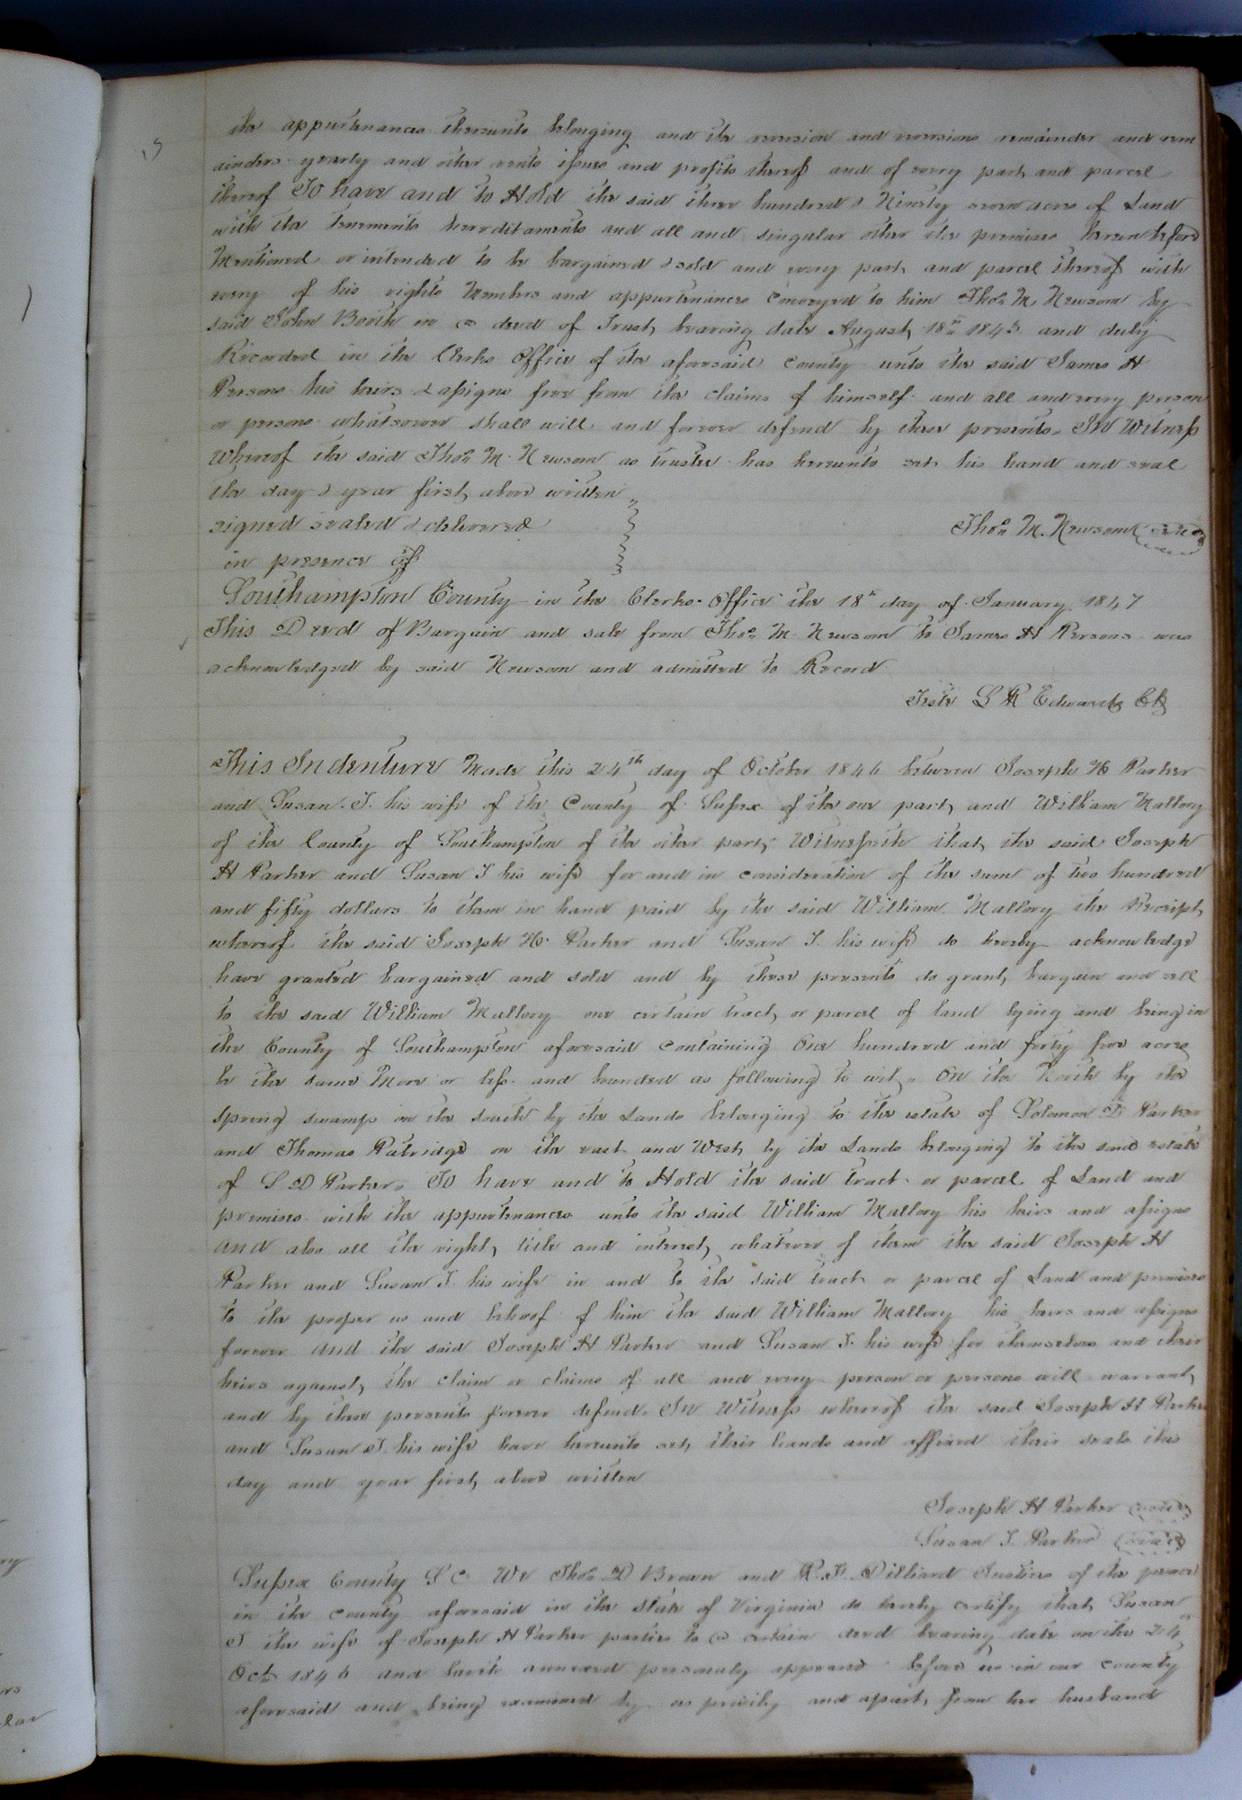 the appurtenances thereunto belonging and the reversion and reversions remainder and rem
ainders yearly and other rents issues and profits thereof and of every part and parcel
thereof To have and to Hold the said three hundred & Ninety seven acres of Land
with the tenements hereditaments and all and singular other the premises herein before
Mentioned or intended to be bargained & sold and every part and parcel thereof with
every of his rights Members and appurtenances Conveyed to him Thos M Newsom by
said John Booth in a deed of Trust bearing date August 18th 1843 and duly
Recorded in the Clerks Office of the aforesaid County unto the said James H
Persons his heirs & assigns free from the claims of himself and all and every person
or persons whatsoever shall will and forever defend by these presents. In Witness
Whereof the said Thos M. Newsom as trustee has hereunto set his hand and seal
the day & year first above written
signed sealed & delivered
in presence of
Thos M. Newsom (seal)
Southampton County in the Clerks Office the 18th day of January 1847
This Deed of Bargain and sale from Thos M Newsom to James H Persons was
acknowledged by said Newsom and admitted to Record
Teste L R Edwards Clk
This Indenture Made this 24th day of October 1846 between Joseph H Parker
and Susan T. his wife of the County of Sussex of the one part and William Mallory
of the County of Southampton of the other part Witnesseth that the said Joseph
H Parker and Susan T his wife for and in consideration of the sum of two hundred
and fifty dollars to them in hand paid by the said William Mallory the Receipt
whereof the said Joseph H. Parker and Susan T. his wife do hereby acknowledge
have granted bargained and sold and by these presents do grant bargain and sell
to the said William Mallory one certain tract or parcel of land lying and being in
the County of Southampton aforesaid containing One hundred and forty five acres
be the same More or less and bounded as following to wit, On the North by the
spring swamp on the south by the Lands belonging to the estate of Solomon D Parker
and Thomas Patridge on the east and West by the Lands belonging to the said estate
of S D Parker. To have and to Hold the said tract or parcel of Land and
premises with the appurtenances unto the said William Mallory his heirs and assigns
And also all the right, title and interest whatever of them the said Joseph H
Parker and Susan T. his wife in and to the said tract or parcel of Land and premises
to the proper us and behoof of him the said William Mallory his heirs and assigns
forever And the said Joseph H Parker and Susan T. his wife for themselves and their
heirs against the claim or claims of all and every person or persons will warrant
and by these presents forever defend. In Witness whereof the said Joseph H Parker
and Susan T. his wife have hereunto set their hands and affixed their seals the
day and year first above written
Joseph H Parker (seal)
Susan T. Parker (seal)
Sussex County S C. We Thos D Brown and R. F. Dilliard Justices of the peace
in the county aforesaid in the State of Virginia do hereby certify that Susan
T the wife of Joseph H Parker parties to a certain deed bearing date on the 24th
Oct 1846 and hereto annexed personally appeared before us in our county
aforesaid and being examined by us privily and apart from her husband